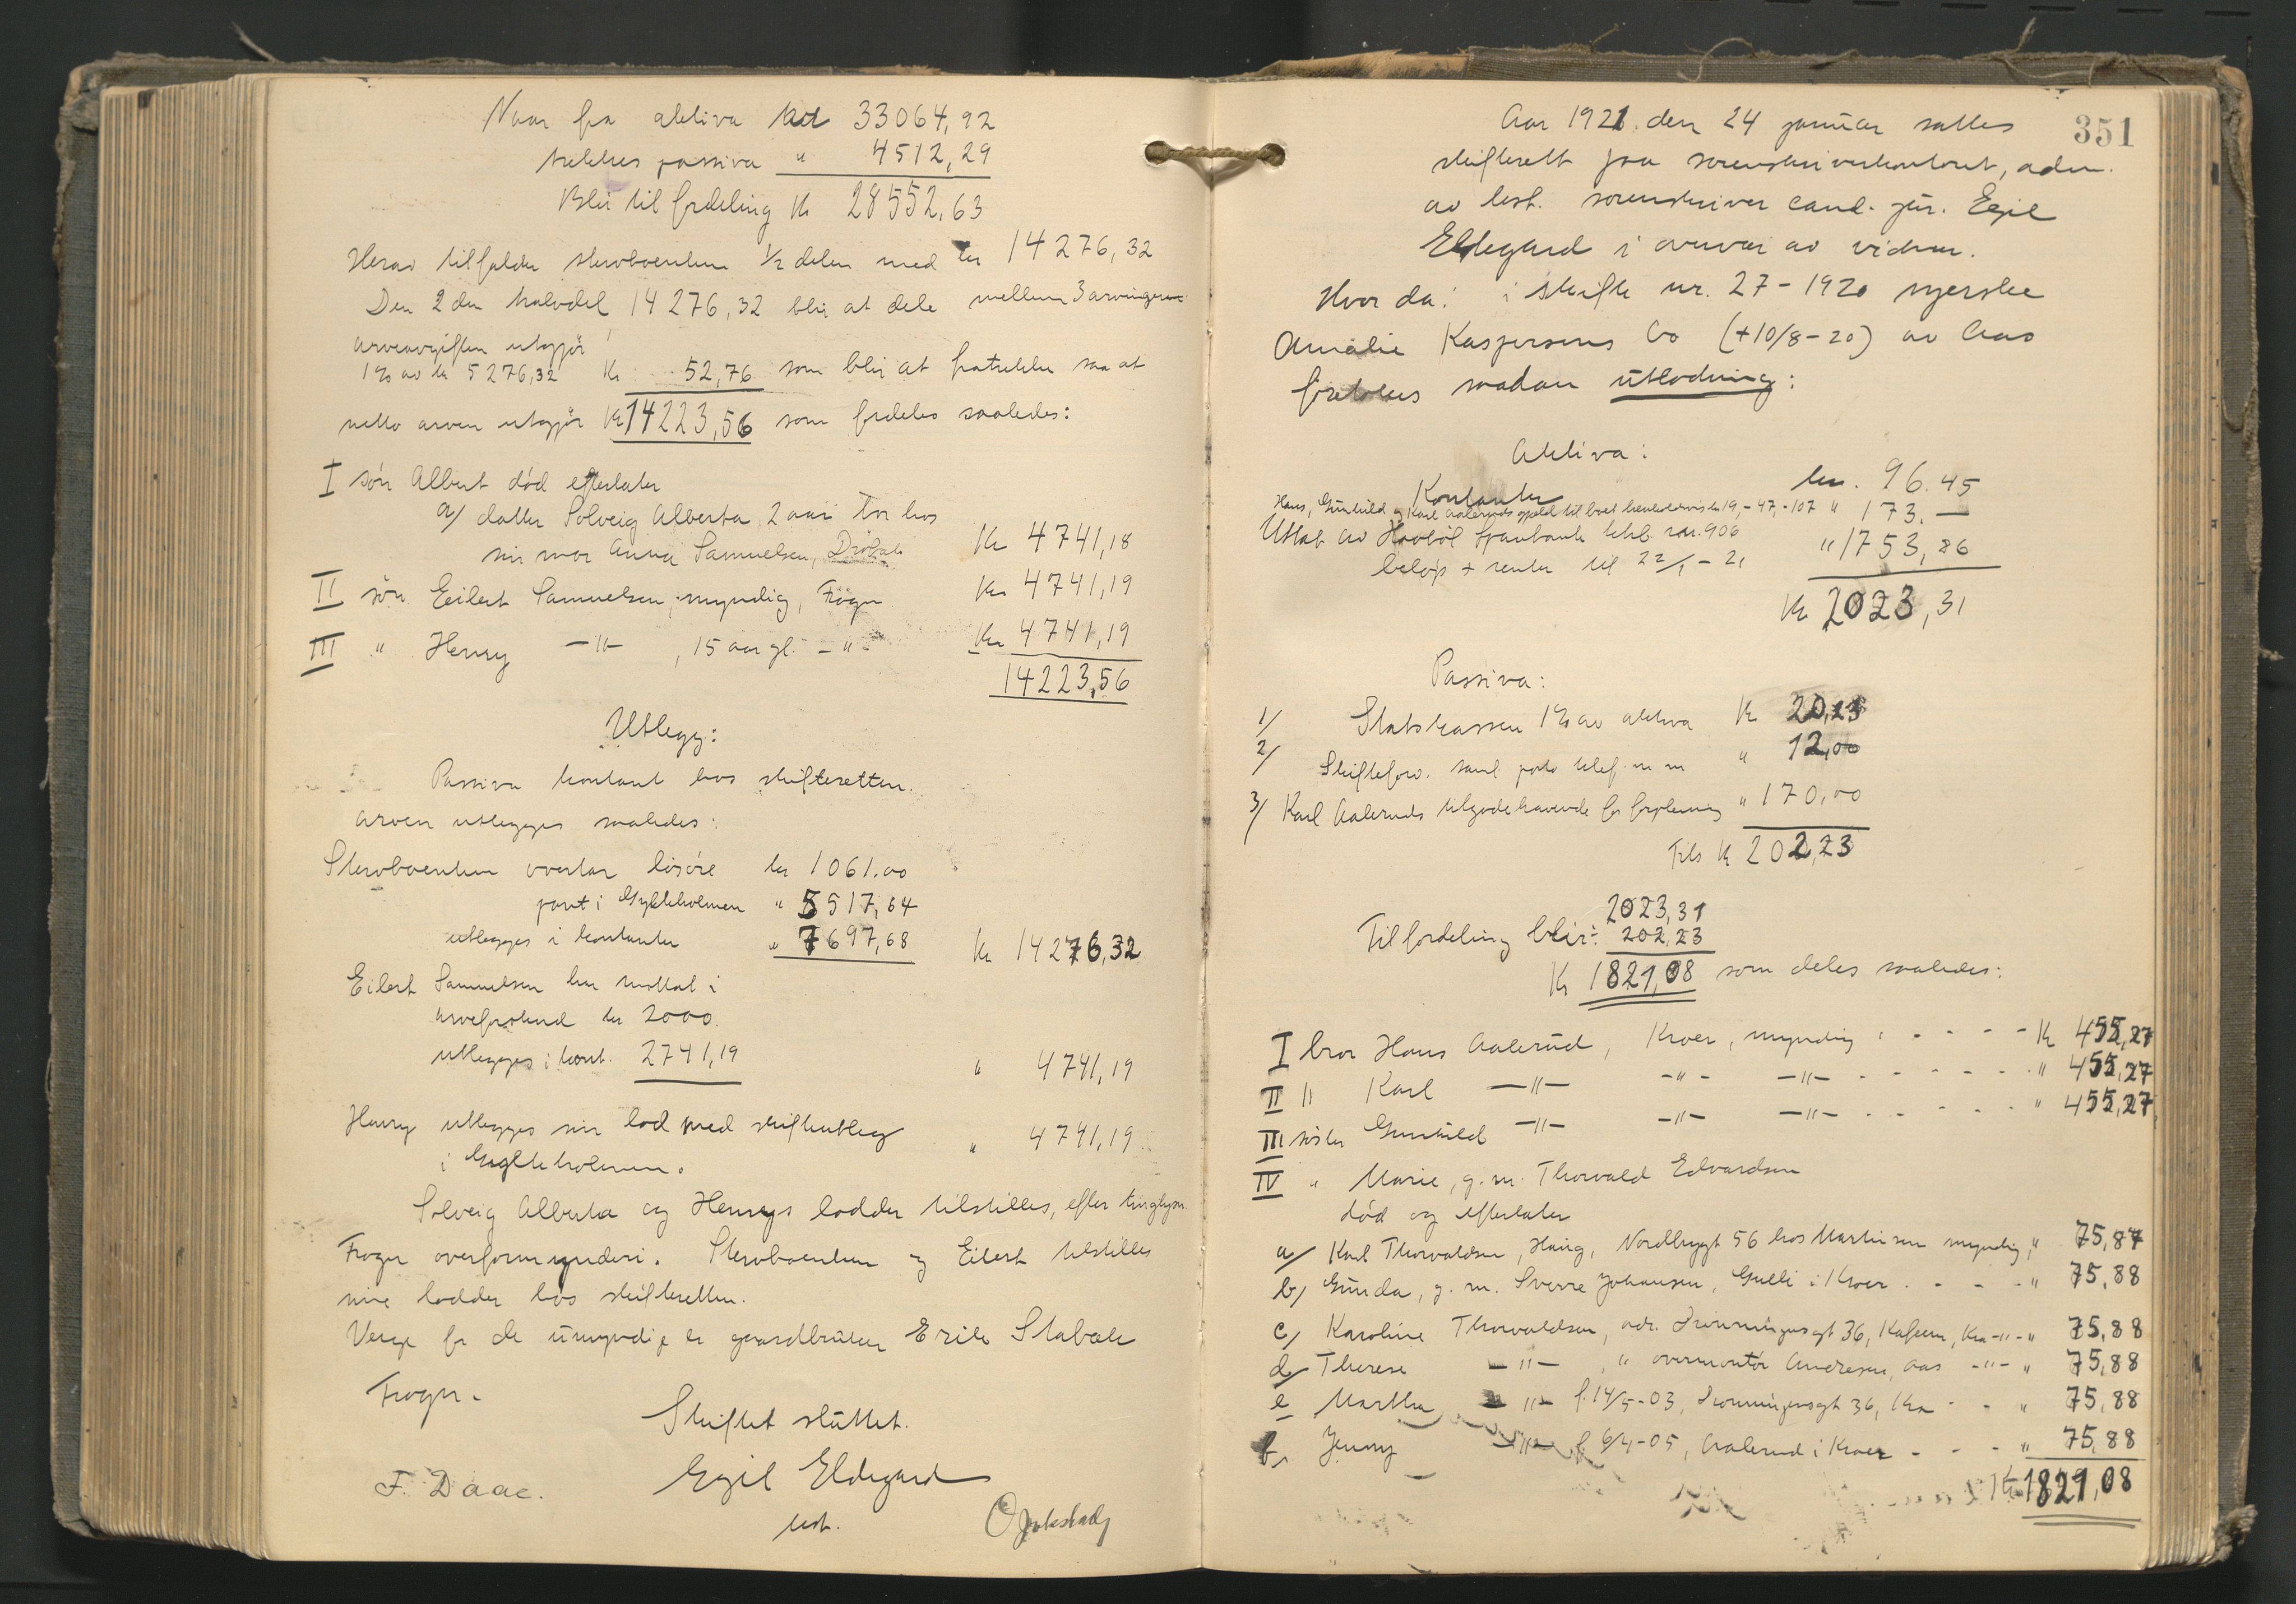 Naar fra aktiva kr 33064,92
trækkes passiva " 4512,29
Blir til fordeling Kr 28552,63
Herav tilfalder sterboenken 1/2 delen med kr 14276,32
Den 2den halvdel 14276,32 blir at dele mellem 3 arvinger
arveavgiften utgjør
1% av kr 5276,32 Kr 52,76 som blir at fratrekke saa at
netto arven utgjør Kr 14223,56 som fordeles saaledes:
I søn Albert død efterlater
a/ datter Solveig Alberta 2 aar bor hos
sin mor Anna Samuelsen, Drøbak Kr 4741,18
II søn Eilert Samuelsen, myndig, Frogn Kr 4741,19
III " Henry -"- , 15 aar gl. - " - Kr 4741,19
14223,56
Utlegg:
Passiva kontant hos skifteretten.
Arven utlegges saaledes:
Sterboenken overtar løsøre kr 1061.00
pant i Gylteholmen " 5517,64
utlegges i kontanter " 7697,68 Kr 14276,32
Eilert Samuelsen har mottat i
arveforskud kr 2000.
utlegges i kont. 2741,19 " 4741,19
Henry utlegges sin lod med skifteutleg
i Gylteholmen. " 4741,19
Solveig Alberta og Henrys lodder tilstilles, efter tinglysn.
Frogn overformynderi. Sterboenken og Eilert tilstilles
sine lodder hos skifteretten.
Verge for de umyndige er gaardbruker Erik Stabæk
Frogn.
Skiftet sluttet.
Egil Eldegard
kst.
F. Daae.
351
Aar 1921 den 24 januar sattes
skifterett paa sorenskriverkontoret, adm.
av kst. sorenskriver cand. jur. Egil
Eldegard i overvær av vidner.
Hvor da: i skifte nr. 27-1920 syerske
Amalie Kaspersens bo (+10/8-20) av Aas
foretokes saadan utlodning:
Aktiva:
Kontanter kr. 96.45
Hans, Gunhild og Karl Aaleruds gjæld til boet henholdsvis kr 19,- 47,- 107 " 173.—
Uttat av Haabøl Sparebank bkb. nr. 906
beløp + renter til 22/1-21 " 1753,86
Kr 2023,31
Passiva:
1/ Statskassen 1% av aktiva Kr 20,23
2/ Skifteforv. saml. porto telef. m m " 12,00
3/ Karl Aaleruds tilgodehavende for forpleining " 170,00
Tils Kr 202,23
2023,31
Til fordeling blir: 202,23
Kr 1821,08 som deles saaledes:
I bror Hans Aalerud, Kroer, myndig Kr 455,27
II " Karl -"- -"- -"- " 455,27
III søster Gunhild -"- -"- -"- " 455,27
IV " Marie, g. m. Thorvald Edvardsen
død og efterlater
a/ Karl Thorvaldsen, Nordbygt 56 hos Martinsen myndig, " 75,87
b/ Gunda, g. m. Sverre Johansen, i Kroer " 75,88
c/ Karoline Thorvaldsen, adr. Dronningensgt 36, Kafeen, Kra -"- " 75,88
d/ Therese -"- , " overmontør Andresen, Aas -"- " 75,88
e Martha -"- f. 14/5-03, Dronningensgt 36, Kra " 75,88
f, Jenny -"- f 6/4-05, Aalerud i Kroer " 75,88
Kr 1821,08